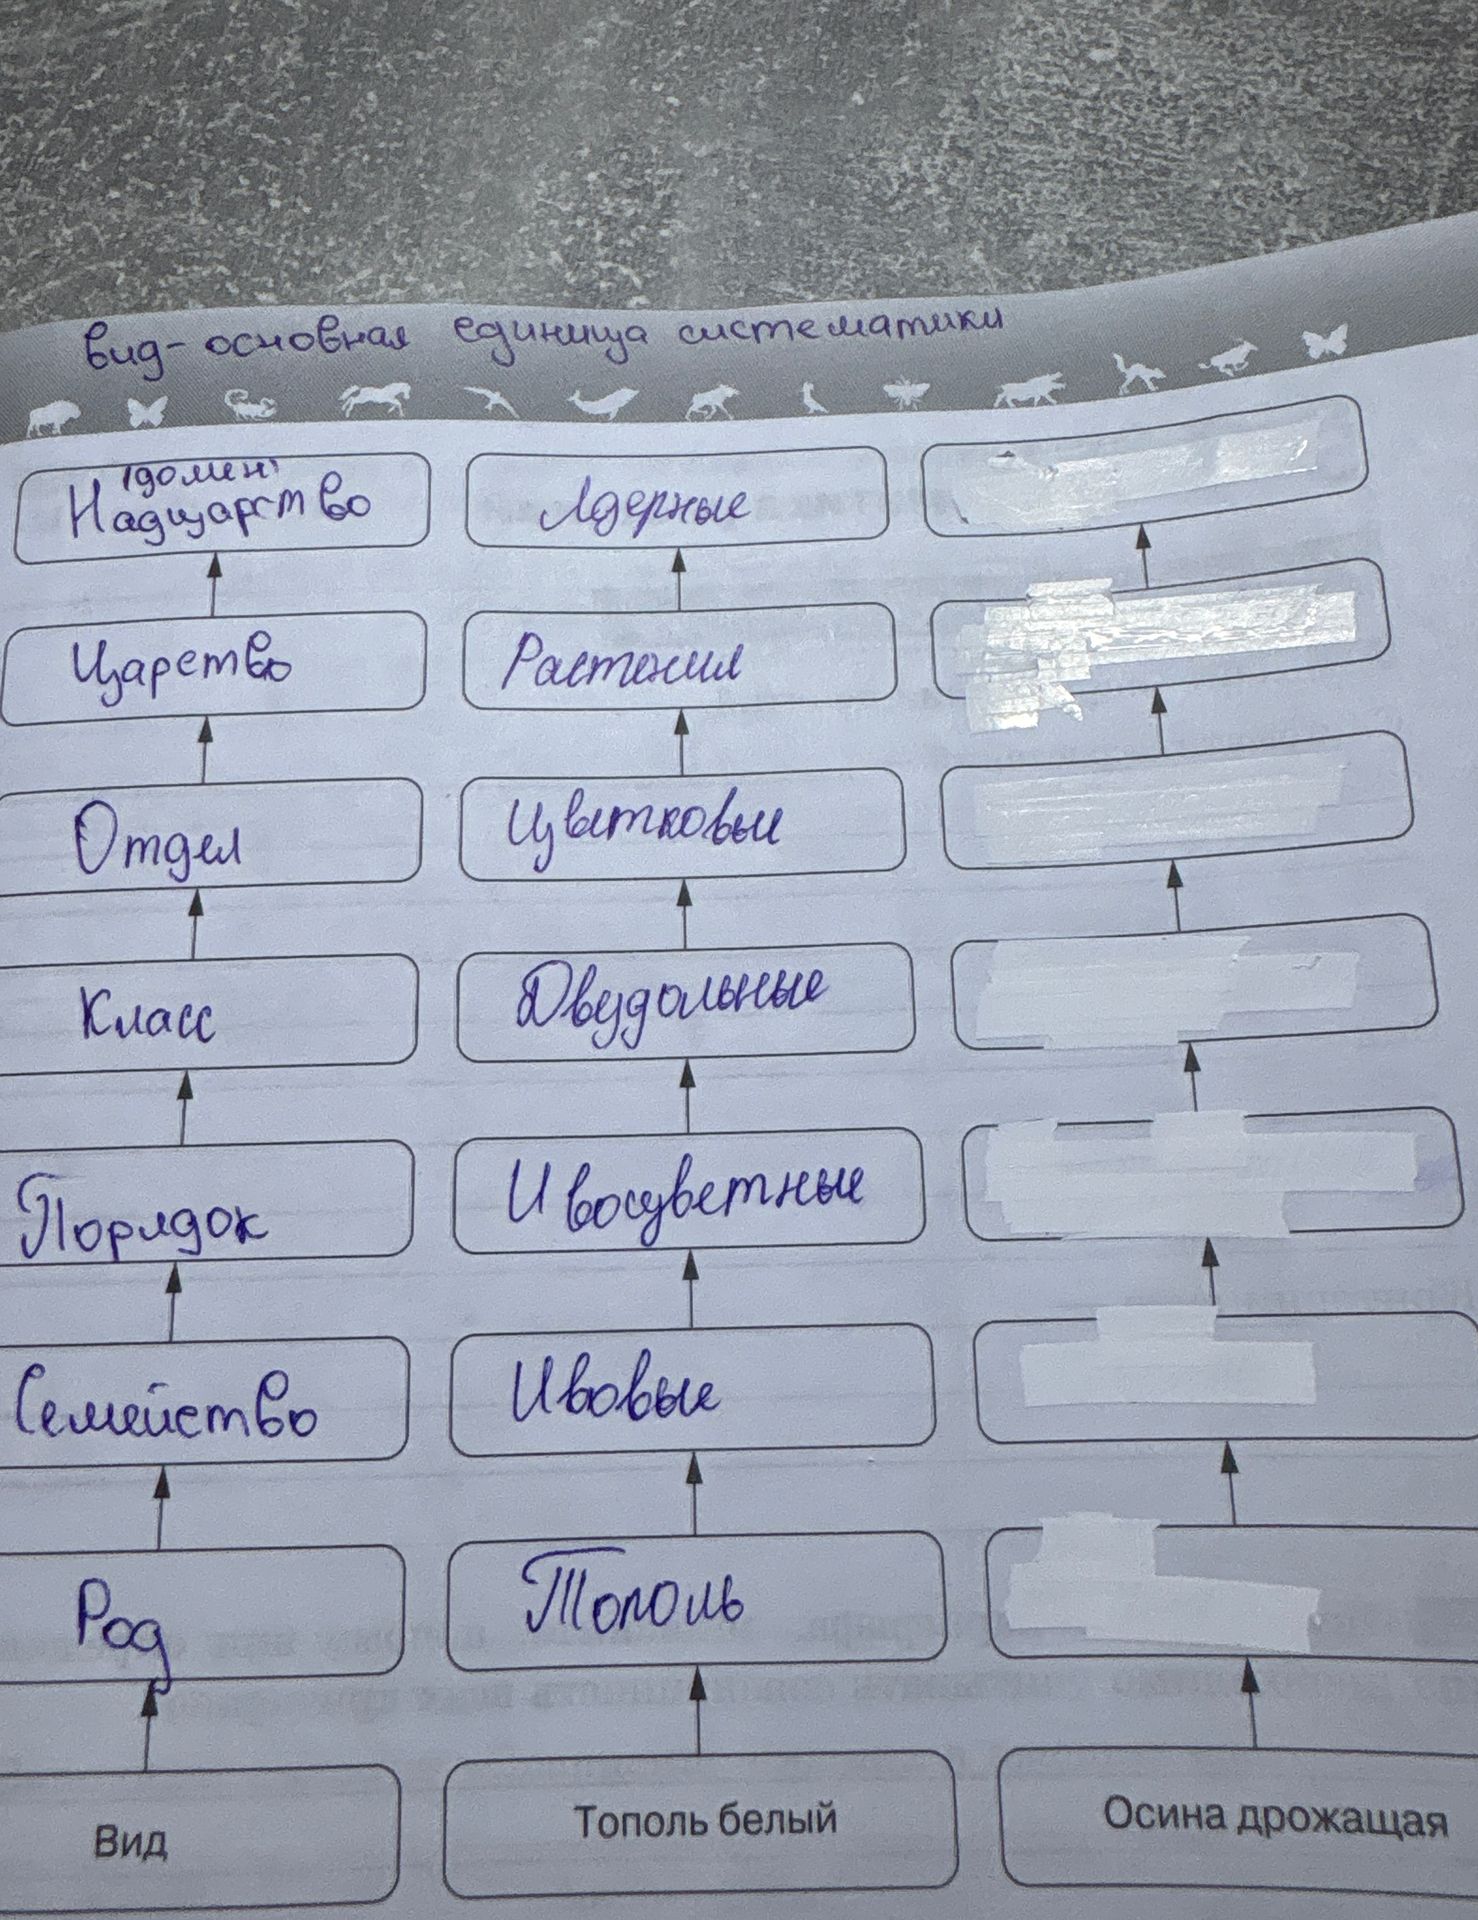 вид - основная единица систематики
(домен)
Надцарство
Ядерные
Царство
Растения
Отдел
Цветковые
Класс
Двудольные
Порядок
Ивоцветные
Семейство
Ивовые
Род
Тополь
Вид
Тополь белый
Осина дрожащая